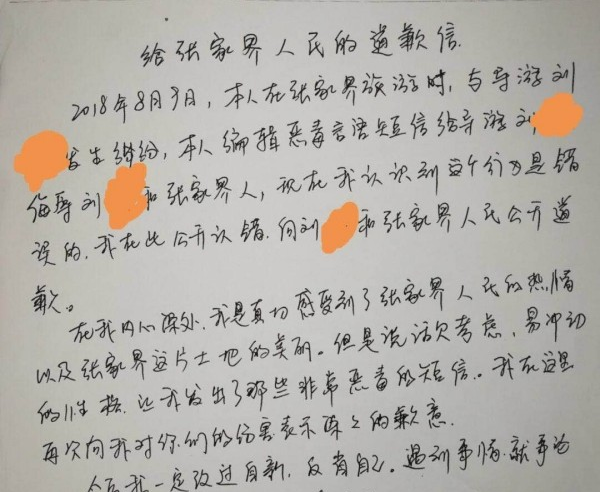 给张家界人民的道歉信
2018年8月9日,本人在张家界旅游时,与导游刘
发生纠纷,本人编辑恶毒言语短信给导游刘
侮辱刘 和张家界人,现在我认识到这个行为是错
误的,我在此公开认错.向刘 和张家界人民公开道
歉。
在我内心深处,我是真切感受到了张家界人民的热情
以及张家界这片土地的美丽。但是说话欠考虑,易冲动
的性格,让我发出了那些非常恶毒的短信。我在这里
再次向我对你们的伤害表示深深的歉意.
今后我一定改过自新,反省自己。遇到事情就事论